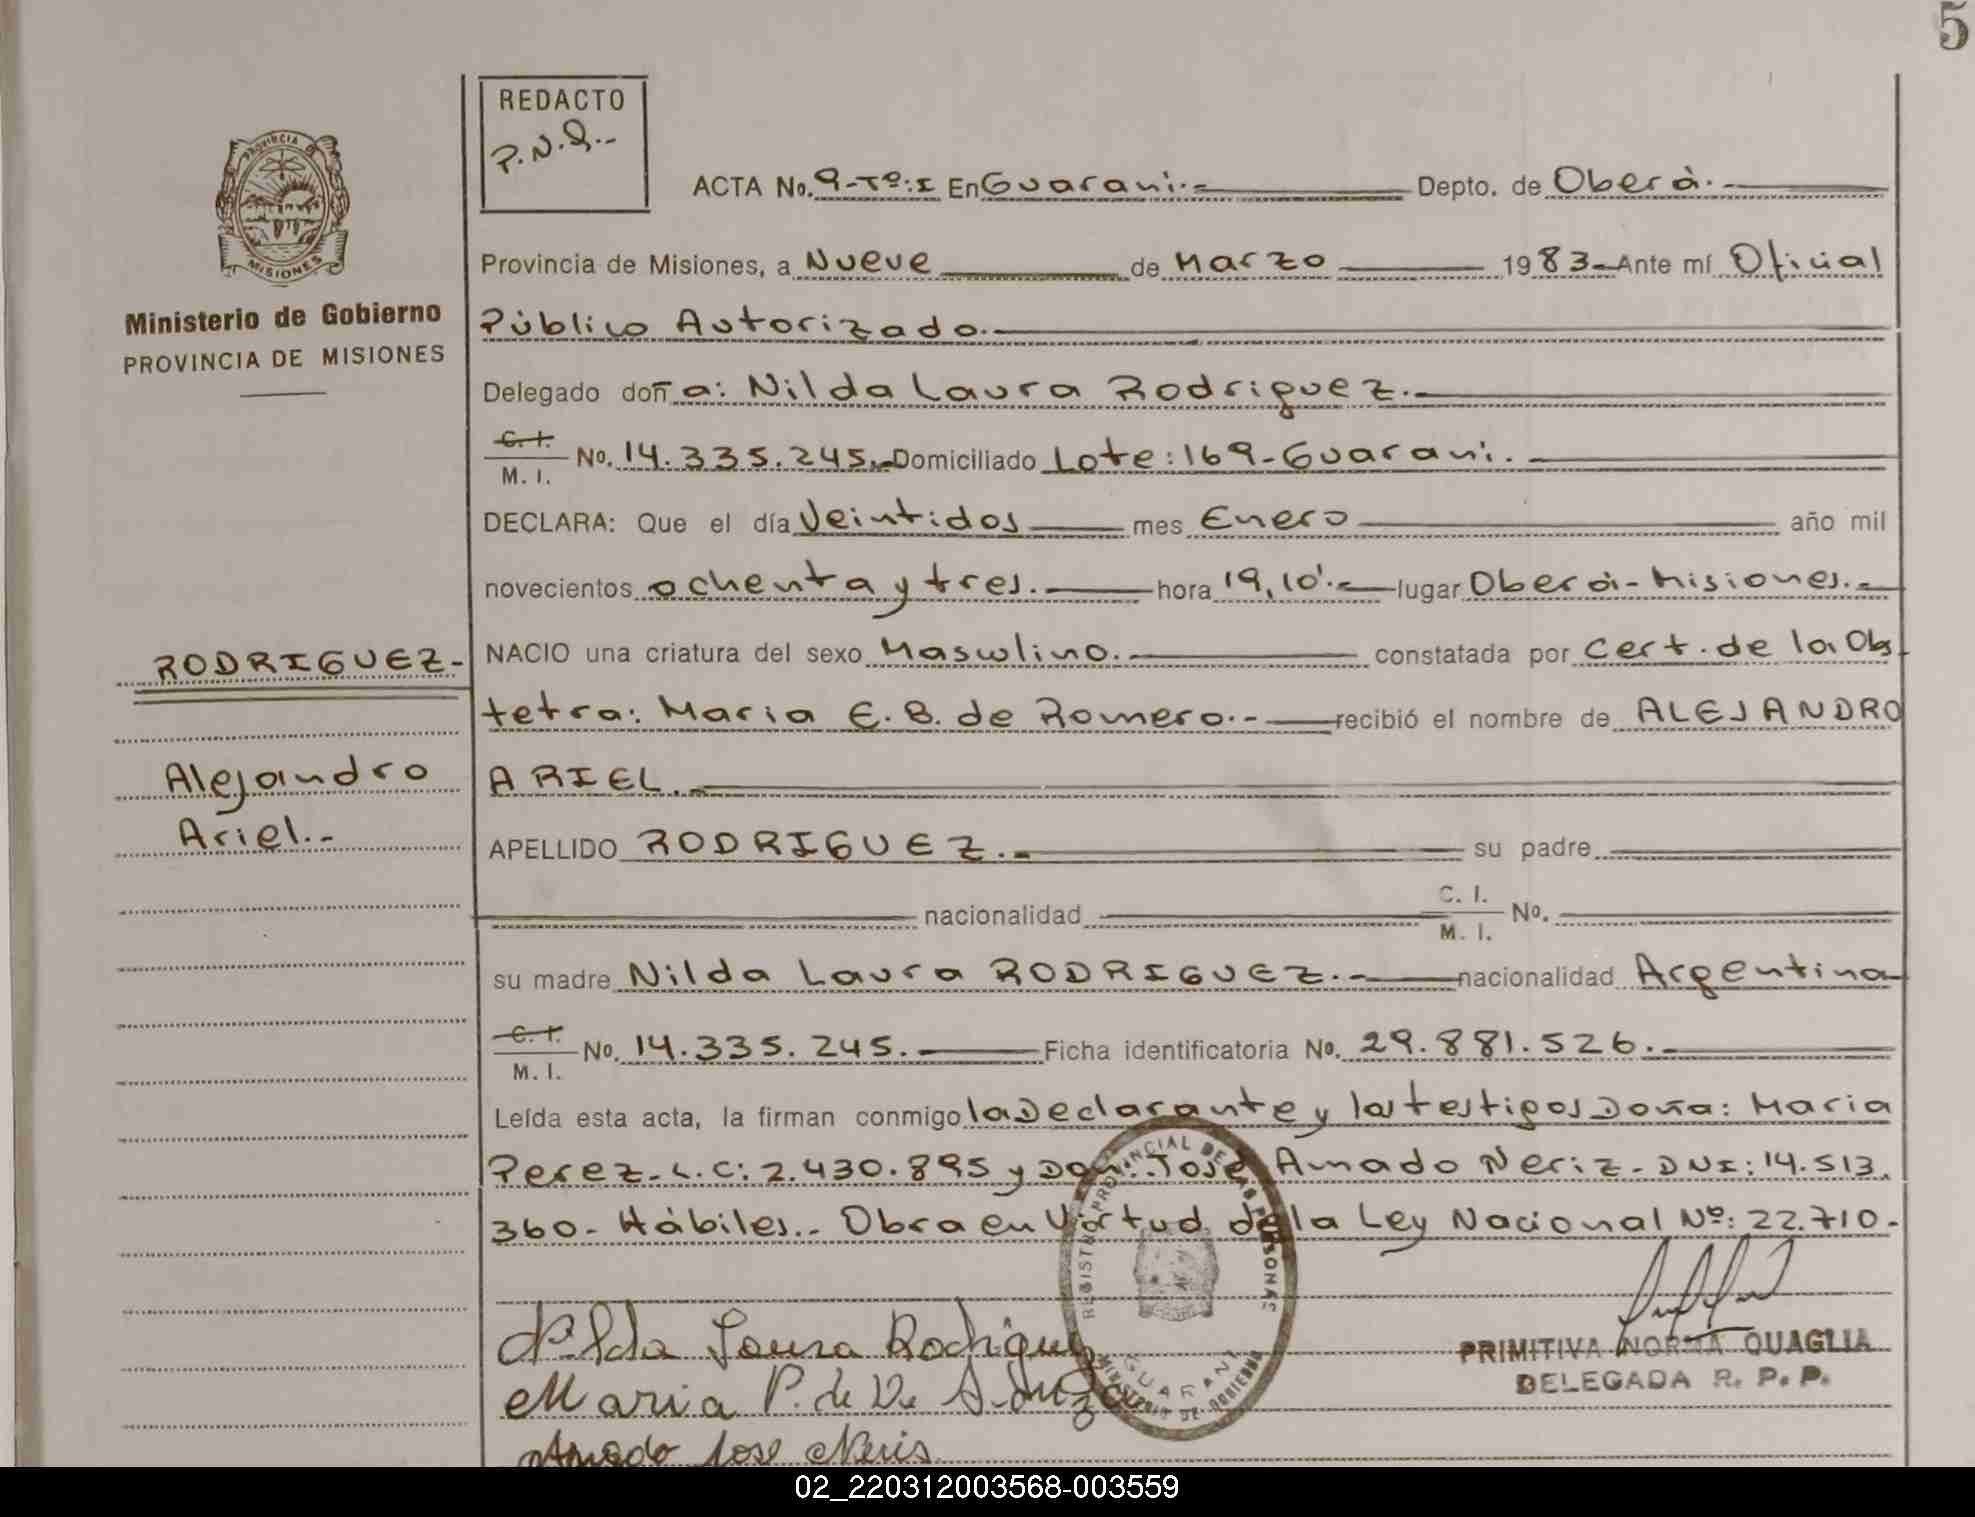 5
REDACTO
P.N.Q.-
PROVINCIA DE
MISIONES
Ministerio de Gobierno
PROVINCIA DE MISIONES
RODRIGUEZ-
Alejandro
Ariel.-
ACTA No. 9-Tº:I En Guarani.- Depto. de Oberà.-
Provincia de Misiones, a Nueve de Marzo 1983- Ante mí Oficial
Público Autorizado.-
Delegado doña: Nilda Laura Rodriguez.-
C. I. / M. I. No. 14.335.245.- Domiciliado Lote: 169-Guarani.-
DECLARA: Que el día Veintidos mes Enero año mil
novecientos ochenta y tres.- hora 19,10'.- lugar Oberà-Misiones.-
NACIO una criatura del sexo Masculino.- constatada por Cert. de la Obs
tetra: Maria E. B. de Romero.- recibió el nombre de ALEJANDRO
ARIEL.-
APELLIDO RODRIGUEZ.- su padre
nacionalidad C. I. / M. I. No.
su madre Nilda Laura RODRIGUEZ.- nacionalidad Argentina
C. I. / M. I. No. 14.335.245.- Ficha identificatoria No. 29.881.526.-
Leída esta acta, la firman conmigo la Declarante y los testigos Doña: Maria
Perez- L.C: 2.430.895 y Don: José Amado Neriz- DNI: 14.513.
360- Hábiles.- Obra en Virtud de la Ley Nacional Nº: 22.710-
REGISTRO PROVINCIAL DE LAS PERSONAS
GUARANI
MINISTERIO DE GOBIERNO
Nilda Laura Rodriguez
Maria P. de De
Amado Jose Neris
PRIMITIVA NORMA QUAGLIA
DELEGADA R. P. P.
02_220312003568-003559